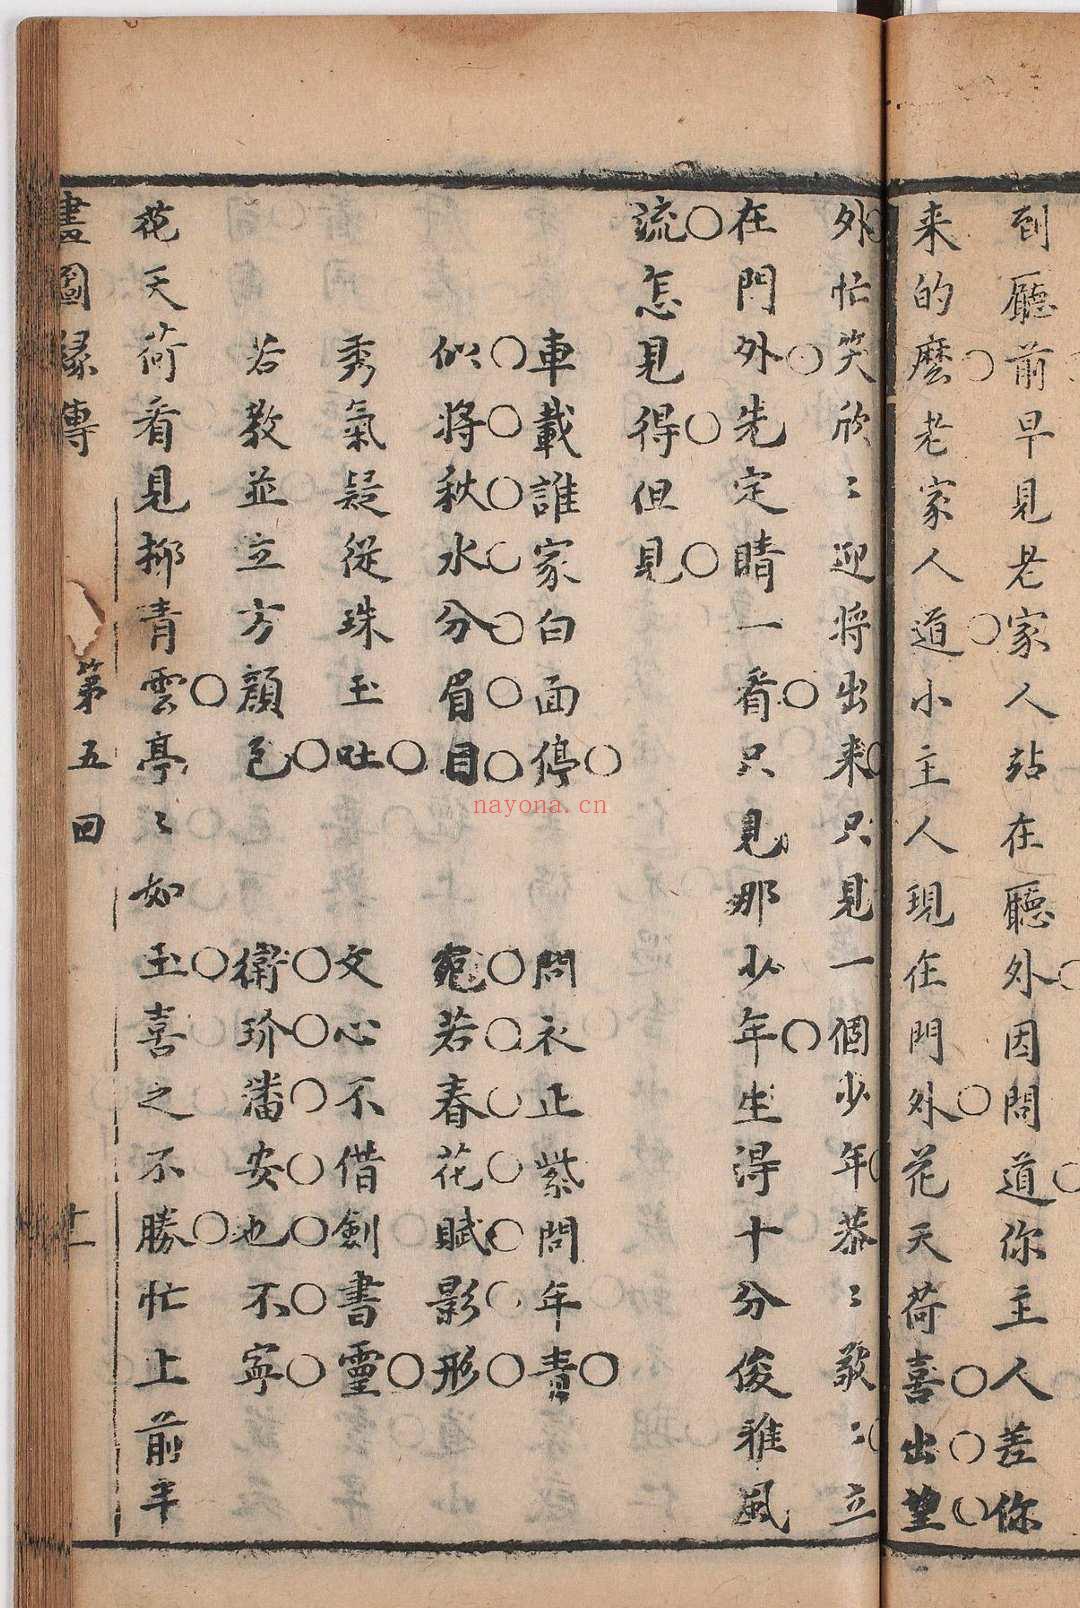 到廳前早見老家人站在廳外因問道你主人差你
来的麽老家人道小主人現在門外花天荷喜出望
外忙笑欣〻迎将出来只見一個少年恭〻敬〻立
在門外先定睛一看只見那少年生得十分俊雅風
流怎見得但見
車載誰家白面停 問衣正紫問年青
似將秋水分眉目 宛若春花賦影形
秀氣疑從珠玉吐 文心不借劍書靈
若教並立方顔色 衛玠潘安也不寧
花天荷看見柳青雲亭〻如玉喜之不勝忙上前半
畫圖緣傳 第五回 十一
nayona.cn